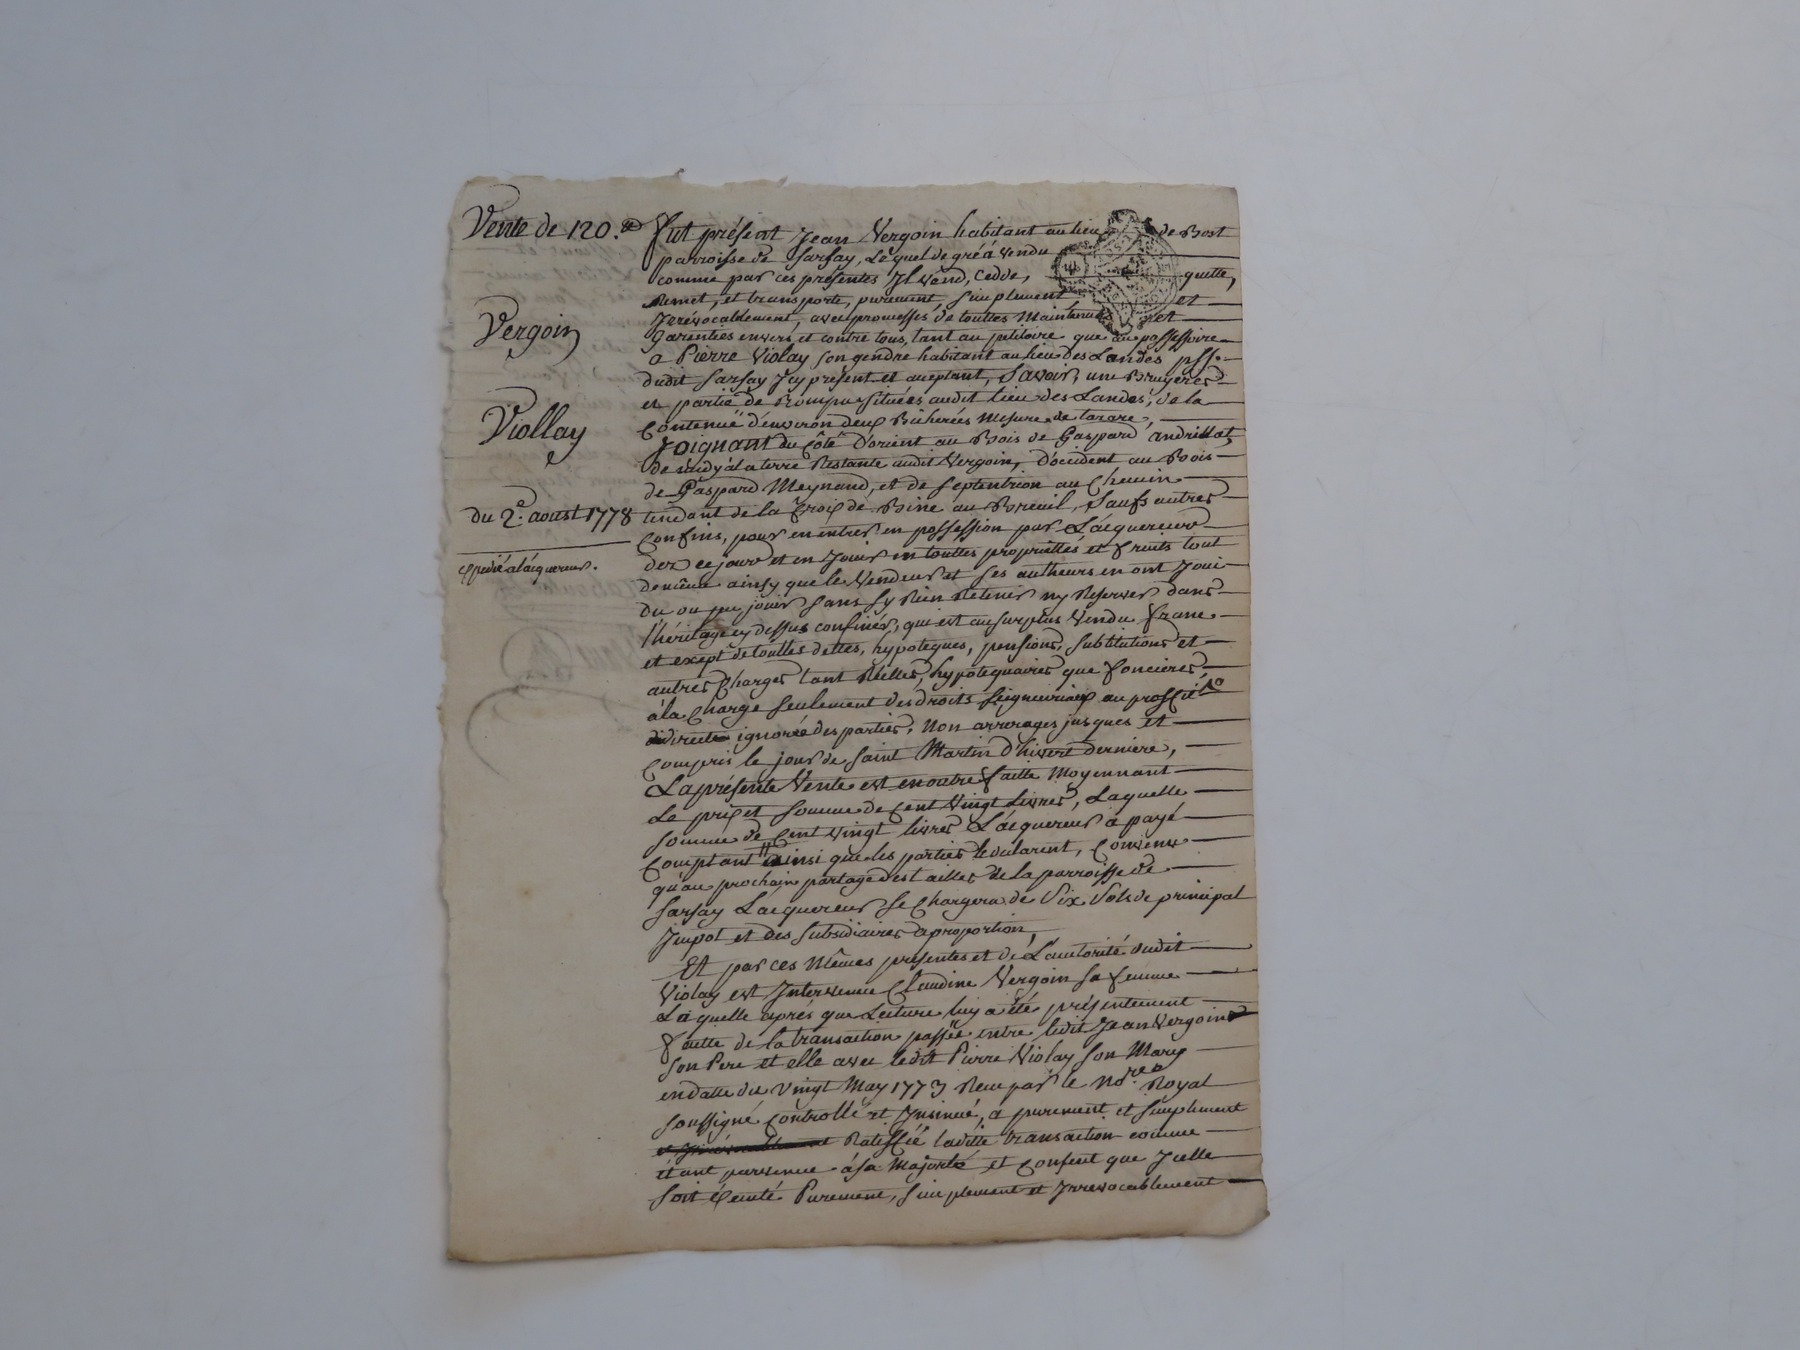 Vente de 120.#
Vergoin
Viollay
du 2e. aoust 1778
expedié a lacquereur.
Fut présent Jean Vergoin habitant au lieu de Bost
parroisse de Sarsay, Lequel de gré à vendu
comme par ces présentes Jl vend, cedde, quitte,
Remet, et transporte, purement, simplement et
Jrrévocablement, avec promesses de touttes Maintenues et
Garenties envers et contre tous, tant au petitoire que au possessoire
a Pierre Violay son gendre habitant au lieu des Landes psse.
dudit Sarsay Jcy présent et aceptant, Savoir, une Bruyeres
et partie de Rompu situées audit Lieu des Landes, de la
Contenuë d'environ deux Bicherées Mesure de tarare,
Joignant du Côté D'orient au Bois de Gaspard andrillat,
de midy à la terre Restante audit Vergoin, D'occident au Bois
de Gaspard Meynand, et de Septentrion au Chemin
tendant de la Croix de Bine au Breuil, Saufs autres
Confins, pour en entrer en possession par L'acquereur
dez ce jour et en Jouir en touttes propriettés et fruits tout
de même ainsy que le Vendeur et ses autheurs en ont Joui
du ou pu jouir sans sy Rien Retenir ny Reserver dans
l'héritage cy dessus confinés, qui est au surplus Vendu franc
et exept de touttes dettes, hypoteques, pensions, substitutions et
autres Charges tant Réelles, hypotequaires que foncieres,
à la Charge seulement des droits seigneuriaux au proffit de
directe ignorée des parties, Non arrerages jusques et
Compris le jour de Saint Martin d'hivert derniere,
La présente Vente est en outre faitte Moyennant
Le prix et somme de Cent Vingt Livres, Laquelle
somme de Cent vingt livres L'acquereur à payé
Comptant ainsi que les parties le déclarent, Convenu
qu'au prochain partage des tailles de la parroisse de
Sarsay Lacquereur se Chargera de Six Sols de principal
Jmpot et des Subsidiaires a proportion,
Et par ces Mêmes présentes et de L'autorité dudit
Violay est Jntervenue Claudine Vergoin sa femme
Laquelle aprés que Lecture luy a été présentement
faitte de la transaction passée entre ledit Jean Vergoin
son Pere et elle avec ledit Pierre Violay son Mary
en datte du Vingt May 1773 Reçu par le Nore. Royal
soussigné Controllé et Jnsinué, a purement et simplement
Ratiffié laditte transaction comme
étant parvenue à sa Majorité et Consent que Jcelle
soit éxecuté Purement, simplement et Jrrevocablement